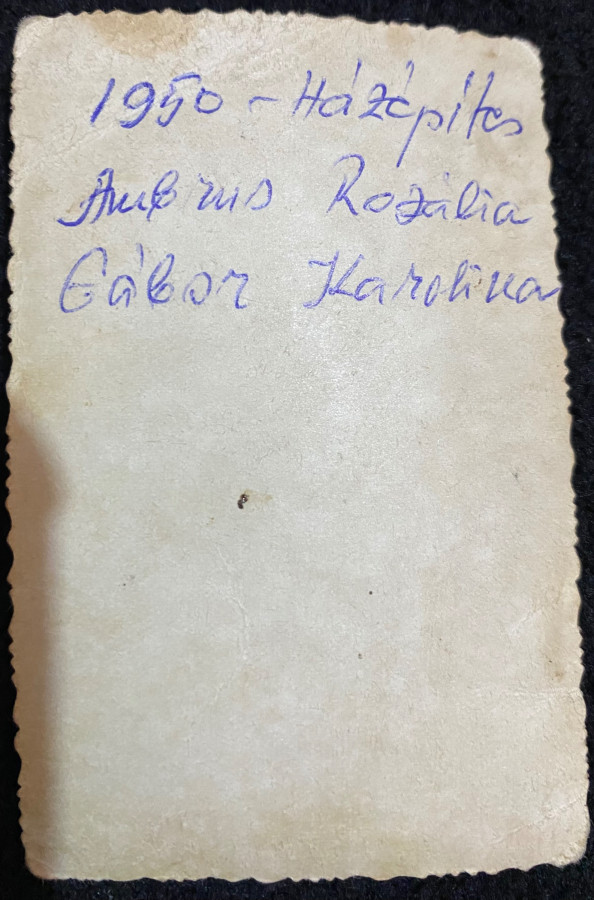 1950 - Házépítés
Ambrus Rozália
Gábor Karolina